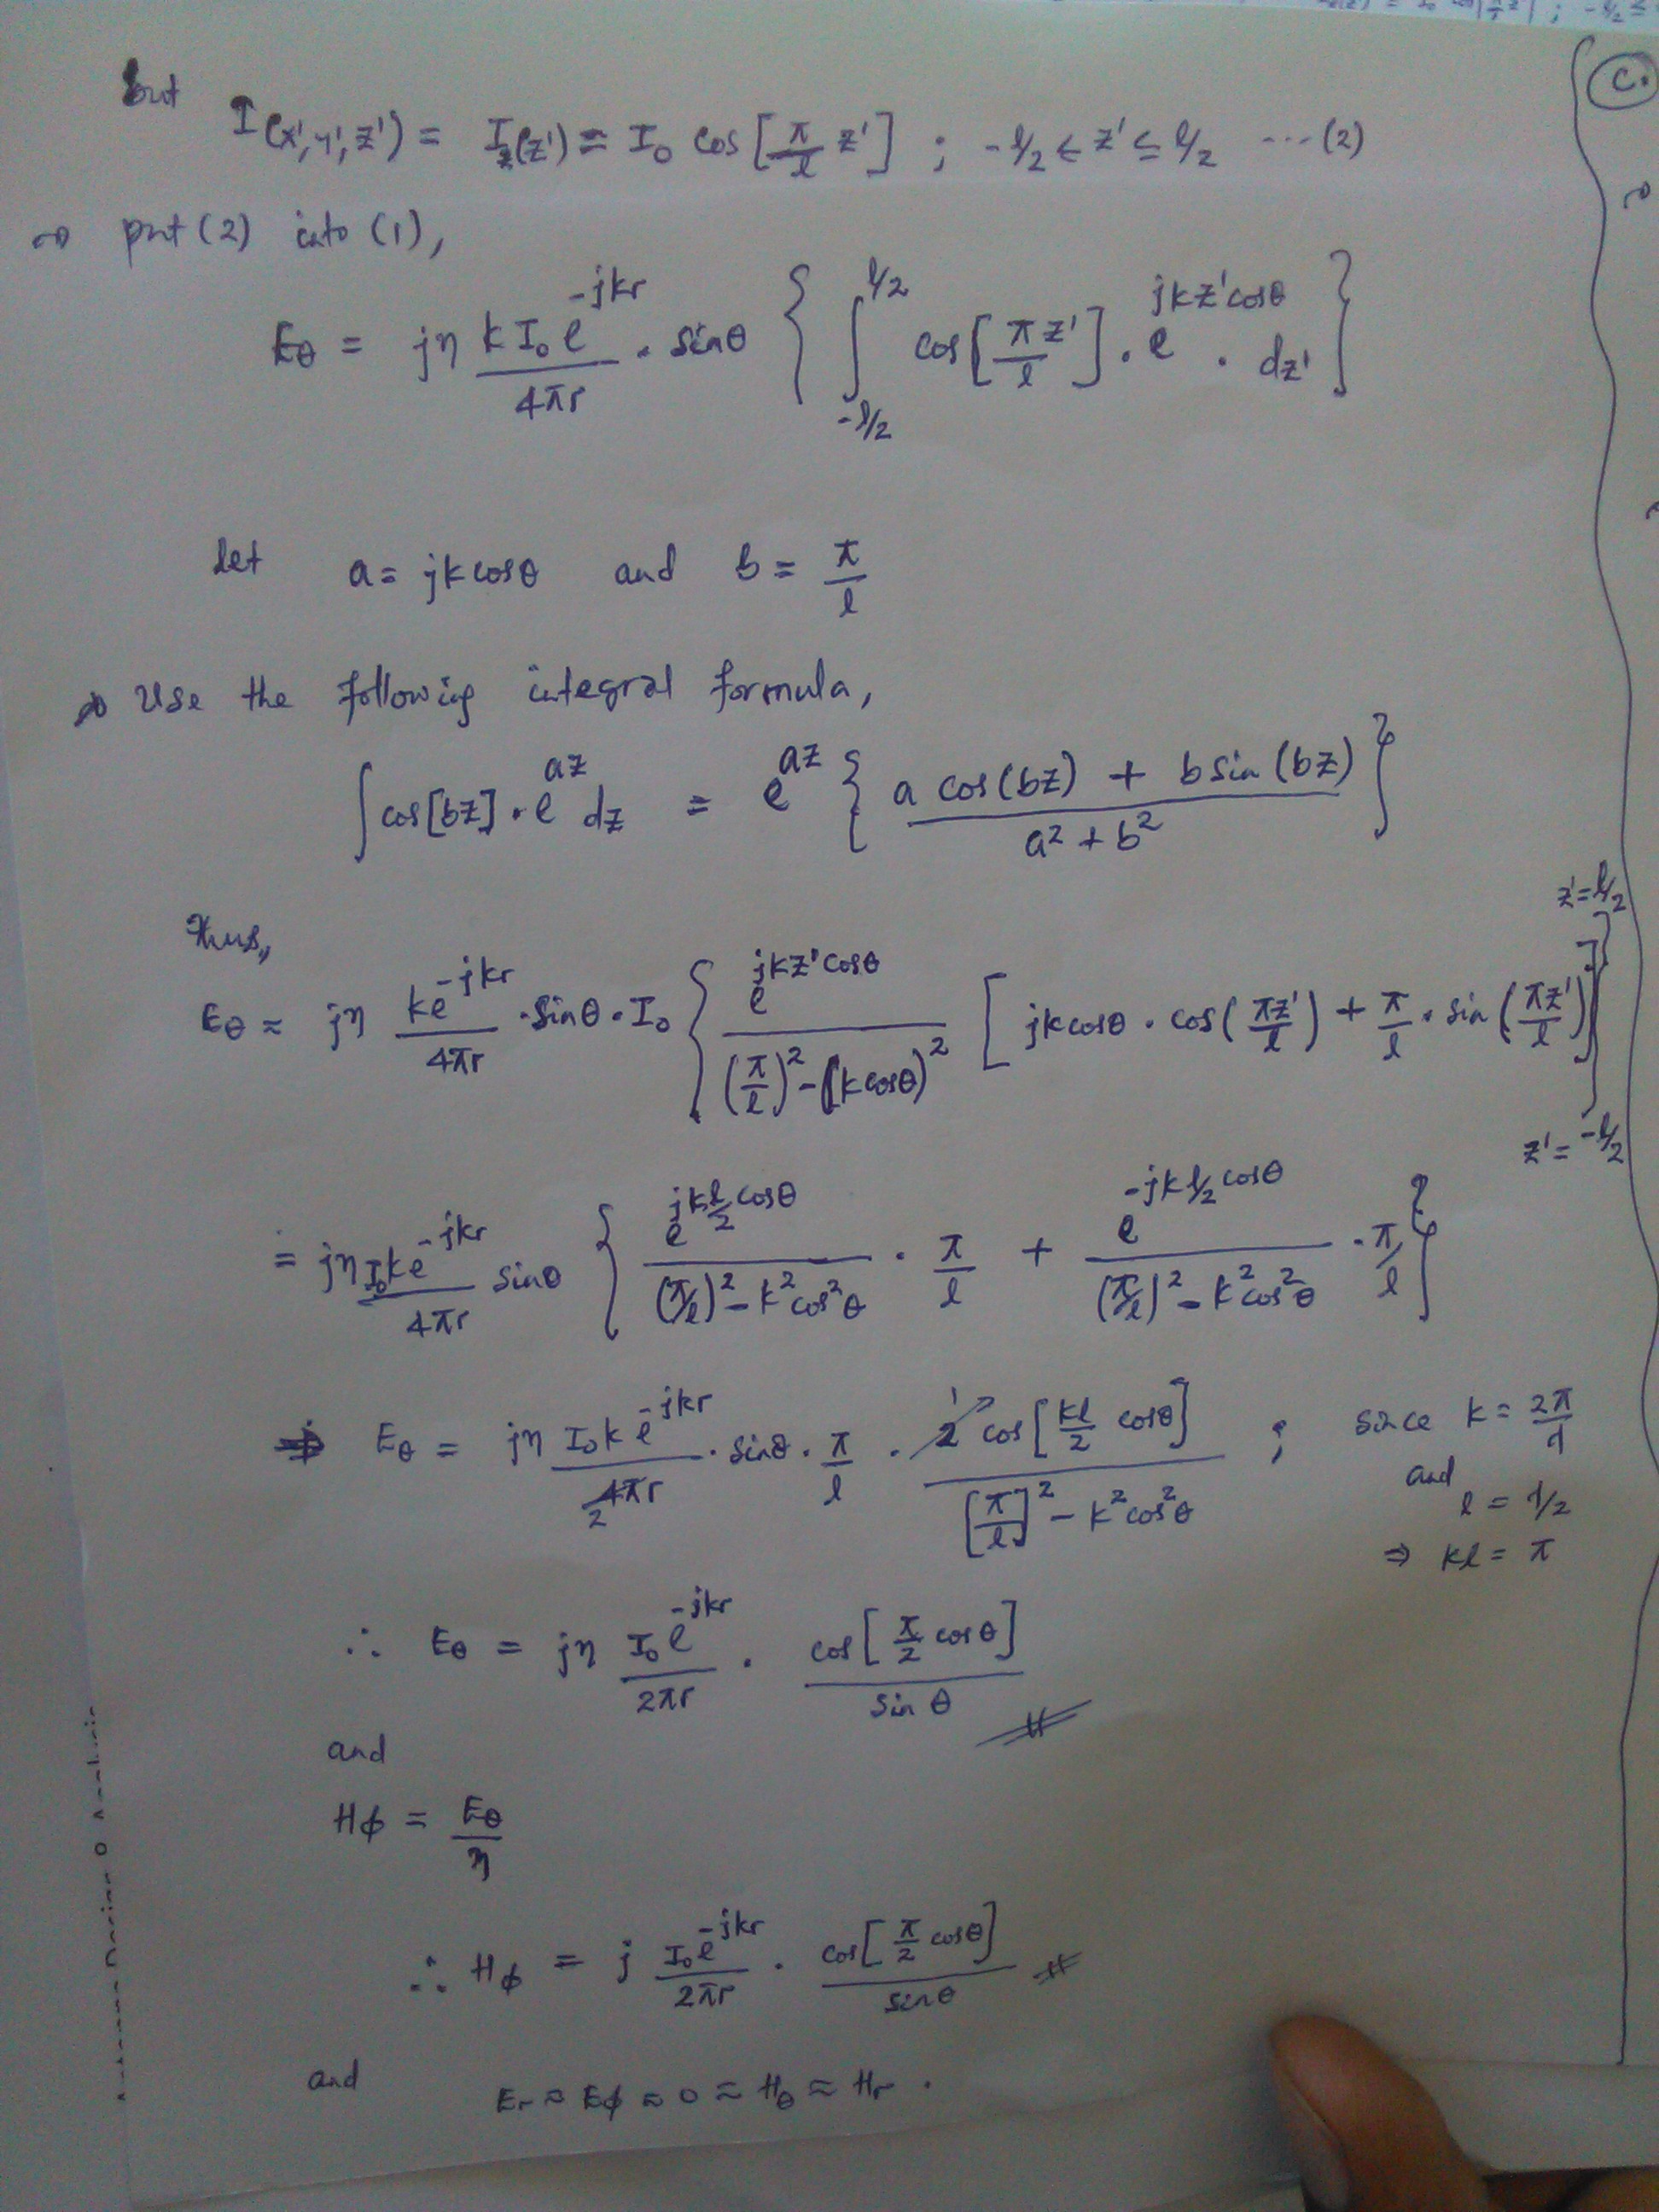 but I(x',y',z') = I_z(z') = I₀ cos[π/l z'] ; -l/2 ≤ z' ≤ l/2 ---(2)
C.
⇒ put (2) into (1),
E_θ = jη k I₀ e^{-jkr} / 4πr · sinθ { ∫_{-l/2}^{l/2} cos[πz'/l] · e^{jkz'cosθ} · dz' }
let a = jk cosθ and b = π/l
⇒ Use the following integral formula,
∫ cos[bz] · e^{az} dz = e^{az} { a cos(bz) + b sin(bz) / a² + b² }
Thus,
E_θ ≈ jη k e^{-jkr} / 4πr · sinθ · I₀ { e^{jkz'cosθ} / (π/l)² - (k cosθ)² [ jk cosθ · cos(πz'/l) + π/l · sin(πz'/l) ] }_{z'=-l/2}^{z'=l/2}
= jη I₀ k e^{-jkr} / 4πr sinθ { e^{jk l/2 cosθ} / (π/l)² - k² cos²θ · π/l + e^{-jk l/2 cosθ} / (π/l)² - k² cos²θ · π/l }
⇒ E_θ = jη I₀ k e^{-jkr} / 4πr 2 · sinθ · π/l · 2 1 cos[kl/2 cosθ] / [π/l]² - k² cos²θ ; since k = 2π/λ
and l = λ/2
⇒ kl = π
∴ E_θ = jη I₀ e^{-jkr} / 2πr · cos[π/2 cosθ] / sinθ
and
H_φ = E_θ / η
∴ H_φ = j I₀ e^{-jkr} / 2πr · cos[π/2 cosθ] / sinθ
and E_r ≈ E_φ ≈ 0 ≈ H_θ ≈ H_r .